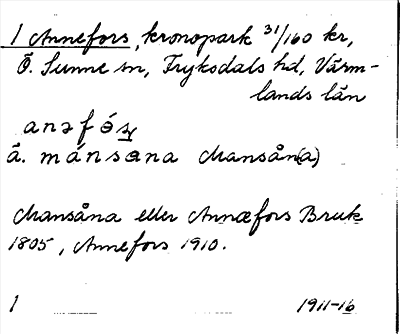 1 Annefors, kronopark 31/160 kr,
Ö. Sunne sn, Fryksdals hd, Värm-
lands län
anəfós̩
ä. mánsəna Mansån(a)
Mansåna eller Annæfors Bruk
1805, Annefors 1910.
1 1911-16